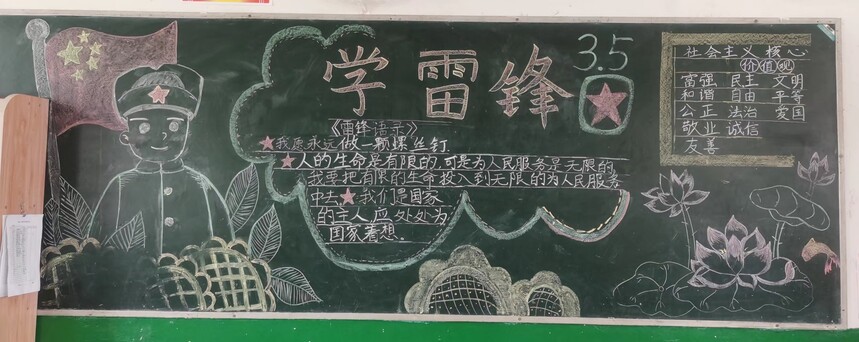 学雷锋
3.5
《雷锋语录》
★我愿永远做一颗螺丝钉.
★人的生命是有限的,可是为人民服务是无限的
我要把有限的生命投入到无限的为人民服务
中去★我们是国家
的主人,应处处为
国家着想.
社会主义 核心
价值观
富强 民主 文明
和谐 自由 平等
公正 法治 爱国
敬业 诚信
友善